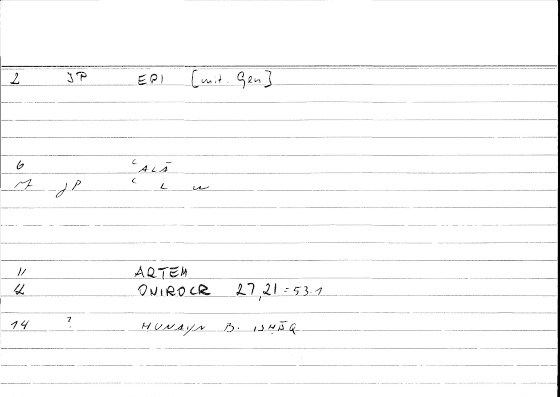 2 JP EPI [mit. Gen]
6 ʿALĀ
7 JP ʿ L W
11 ARTEM
12 ONIROCR 27,21 = 53.1
14 ? HUNAYN B. ISHĀQ